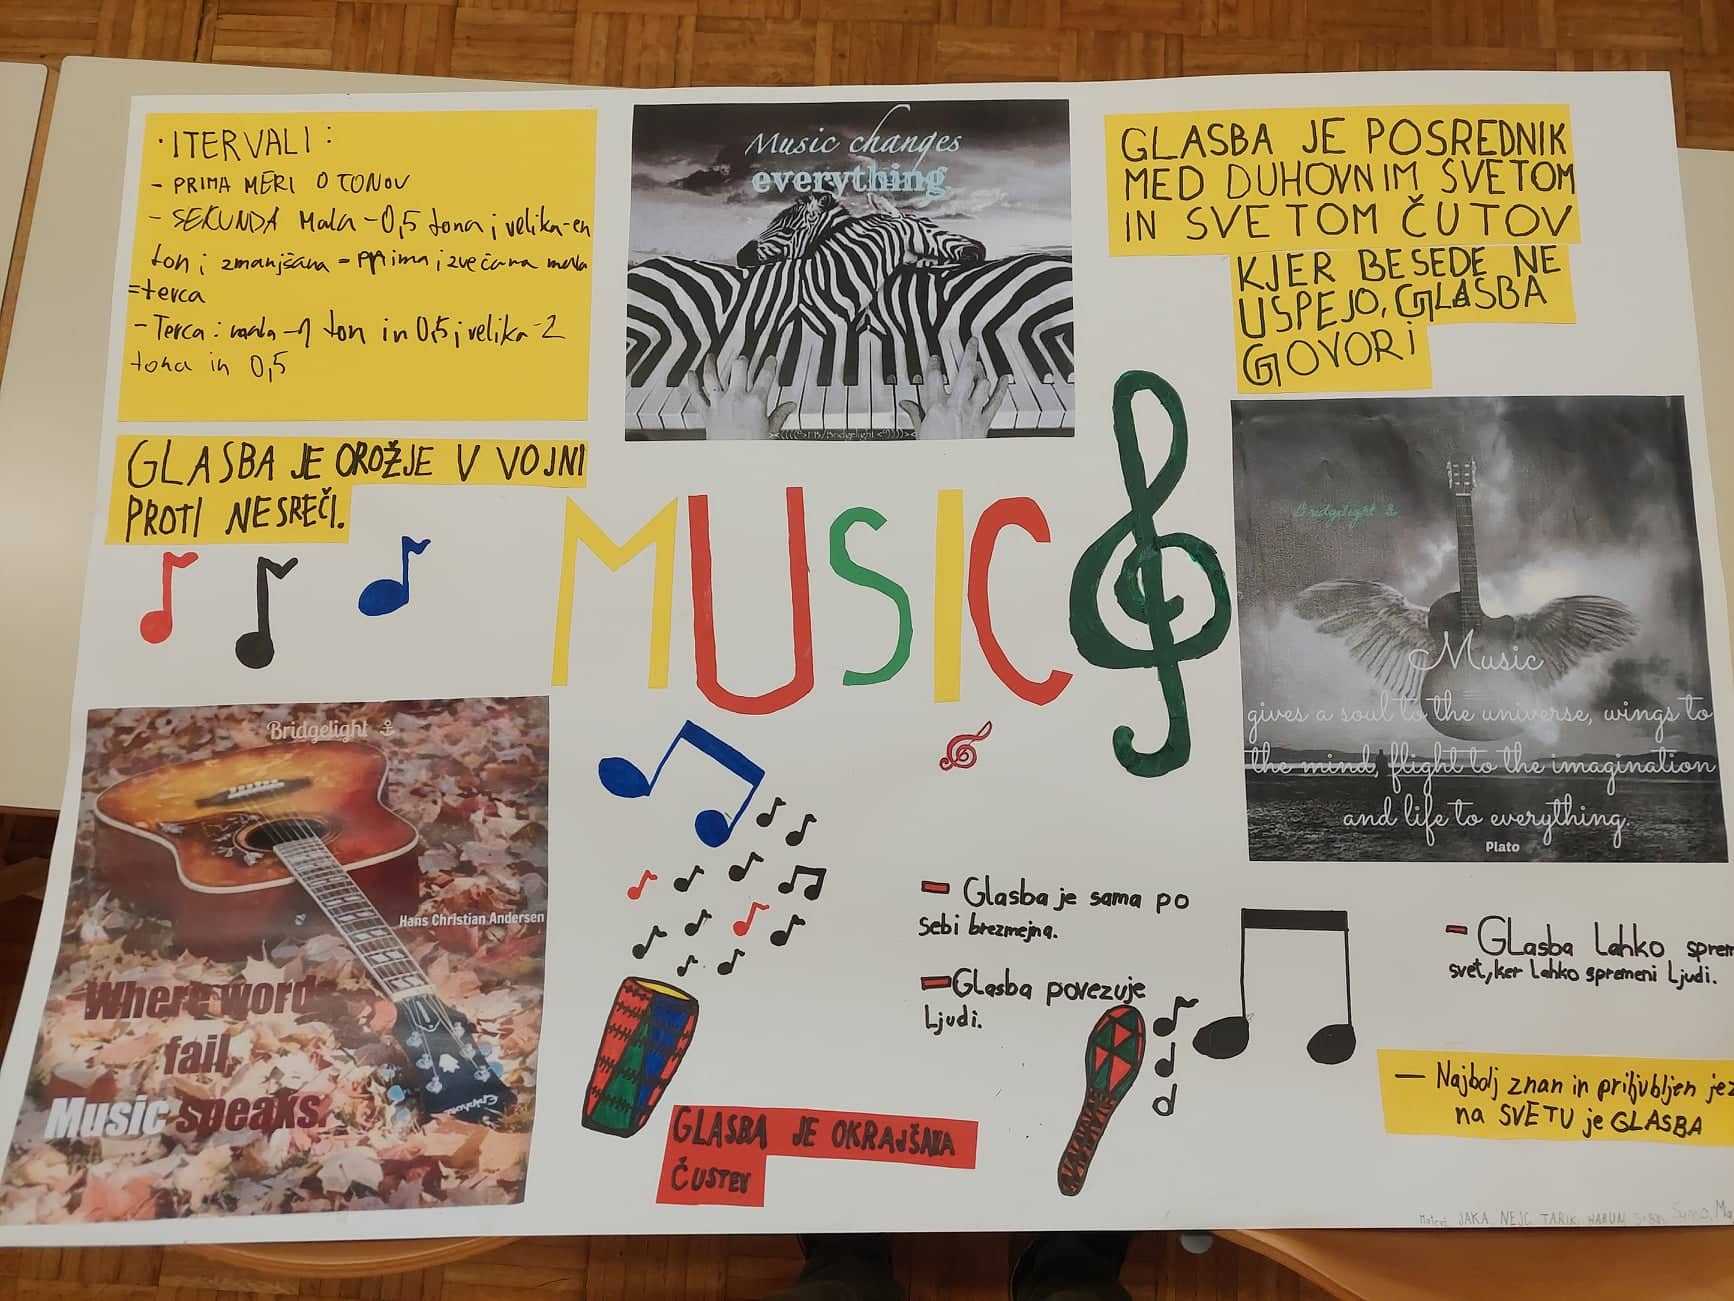 ·ITERVALI:
- PRIMA MERI O TONOV
- SEKUNDA Mala - 0,5 tona; velika - en
ton; zmanjšana = prima; izvečana mala
= terca
- Terca: mala - 1 ton in 0,5; velika - 2
tona in 0,5
GLASBA JE OROŽJE V VOJNI
PROTI NESREČI.
Music changes
everything
GLASBA JE POSREDNIK
MED DUHOVNIM SVETOM
IN SVETOM ČUTOV
KJER BESEDE NE
USPEJO, GLASBA
GOVORi
MUSIC
Bridgelight
Music
gives a soul to the universe, wings to
the mind, flight to the imagination
and life to everything.
Plato
Bridgelight
Hans Christian Andersen
Where words
fail,
Music speaks.
- Glasba je sama po
sebi brezmejna.
- Glasba povezuje
Ljudi.
- GLasba Lahko sprem
svet, ker Lahko spremeni Ljudi.
GLASBA JE OKRAJŠAVA
ČUSTEV
- Najbolj znan in priljubljen jez
na SVETU je GLASBA
JAKA, NEJC, TARIK, HARUN